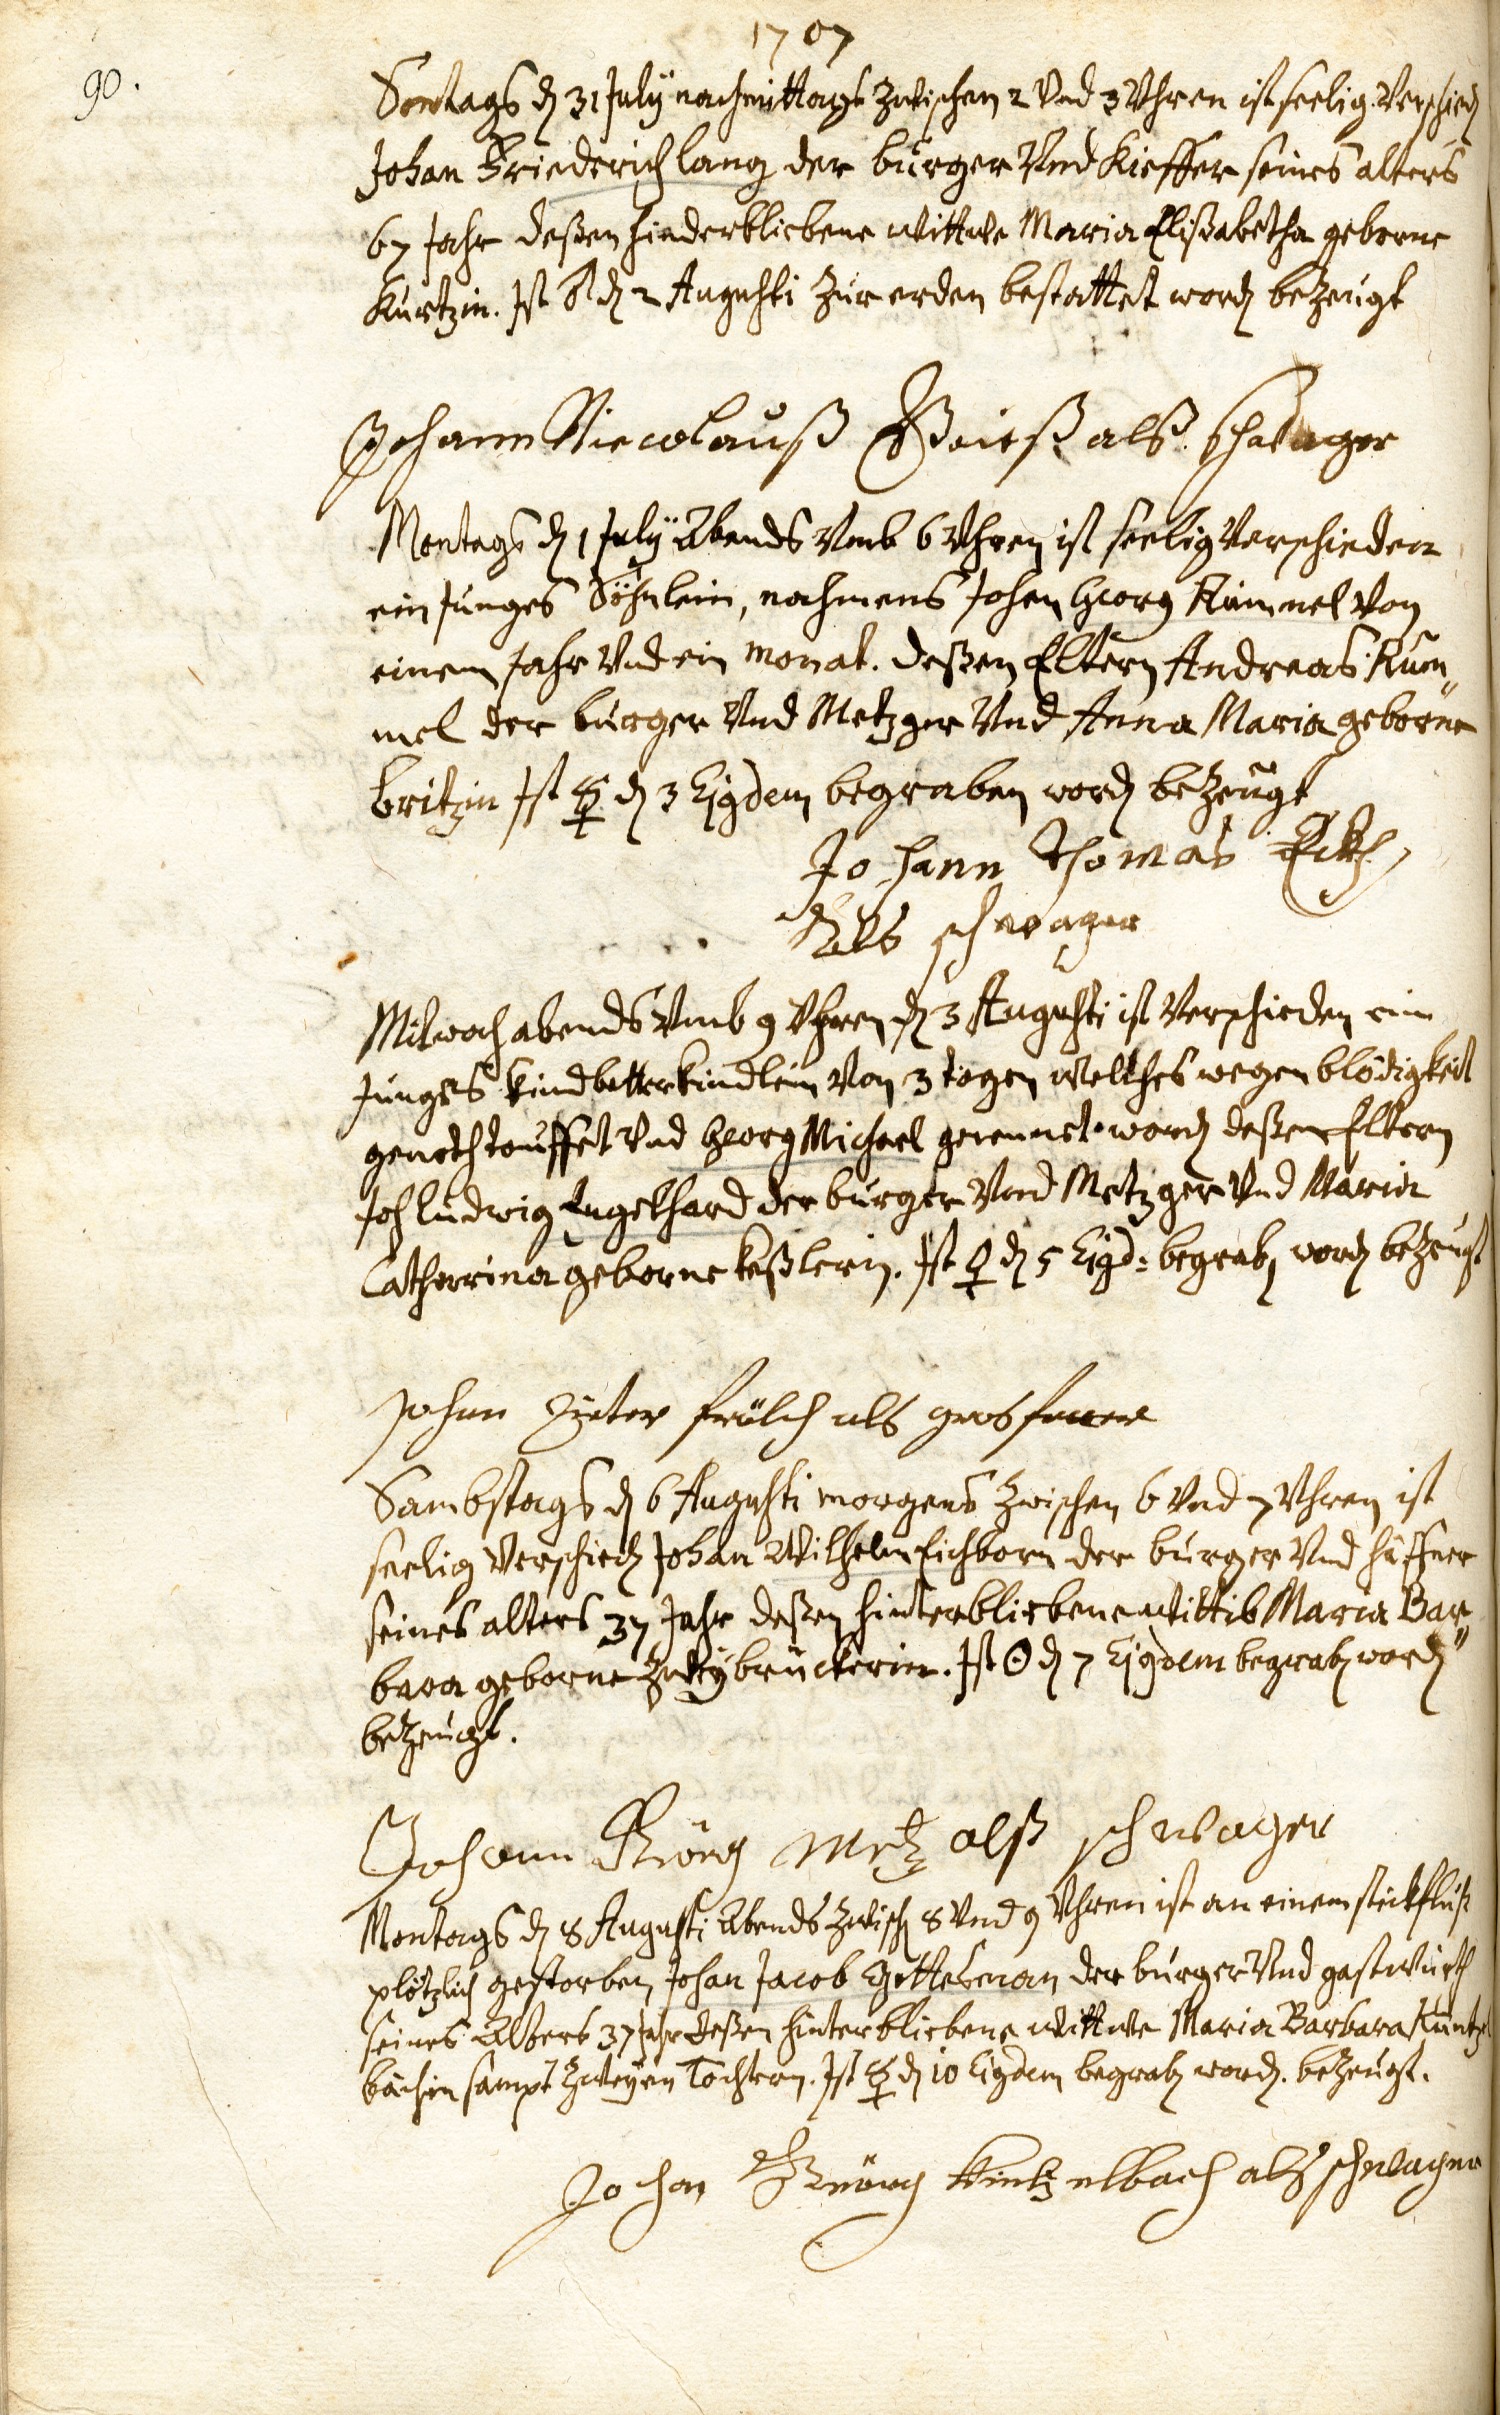 1707
90.
Sontags d 31 July nachmittags zwischen 2 Vnd 3 Vhren ist seelig verschied
Johan Friederich lang der burger Vnd Kieffer seines alters
67 Jahr deßen hinderbliebene wittwe Maria Elisabetha geborne
Kurtzin. Ist ♂ d 2 Augusti zur erden bestattet word bezeugt
Johann Nicolauß Weiß alß schwager
Montags d 1 July Abends Vmb 6 Vhren ist seelig verschieden
ein Junges Söhnlein, nahmens Johan Georg Kümmel Von
einem Jahr Vnd ein monat. deßen Eltern Andreas Küm„
mel der burger Vnd Metzger Vnd Anna Maria geborne
Britzin Ist ☿ d 3 Ejgdem begraben word bezeugt
Johann Thomas Eckh
Als schwager
Mitwoch abends Vmb 9 Vhren d 3 Augusti ist Verschieden ein
Junges kindbetterkindlein Von 3 tagen welches wegen blödigkeit
genothtauffet Vnd Georg Michael genennet word deßen Eltern
Joh ludwig Engelhard der burger Vnd Metzger Vnd Maria
Catharina geborne Keßlerin. Ist ♀ d 5 Ejgd: begrab word bezeugt
Johan frölich als grosfatter
Sambstags d 6 Augusti morgens zwischen 6 Vnd 7 Vhren ist
seelig verschied Johan Wilhelm Eichborn der burger Vnd häffner
seines alters 37 Jahr deßen hinterbliebene wittib Maria Bar„
bara geborne Zweybrückerin. Ist ☉ d 7 Ejgdem begrab word
bezeugt.
Johann Görg Metz alß schwager
Montags d 8 Augusti Abends zwisch 8 Vnd 9 Vhren ist an einem stickfluß
plötzlich gestorben Johan Jacob Gottesman der burger Vnd gastwürth
seines Alters 37 Jahr deßen hinterbliebene wittwe Maria Barbara Küntzel
bächin sampt zweyen Töchtern. Ist ☿ d 10 Ejgdem begrab word. bezeugt.
Johan Görg Kintzelbach alß schwager